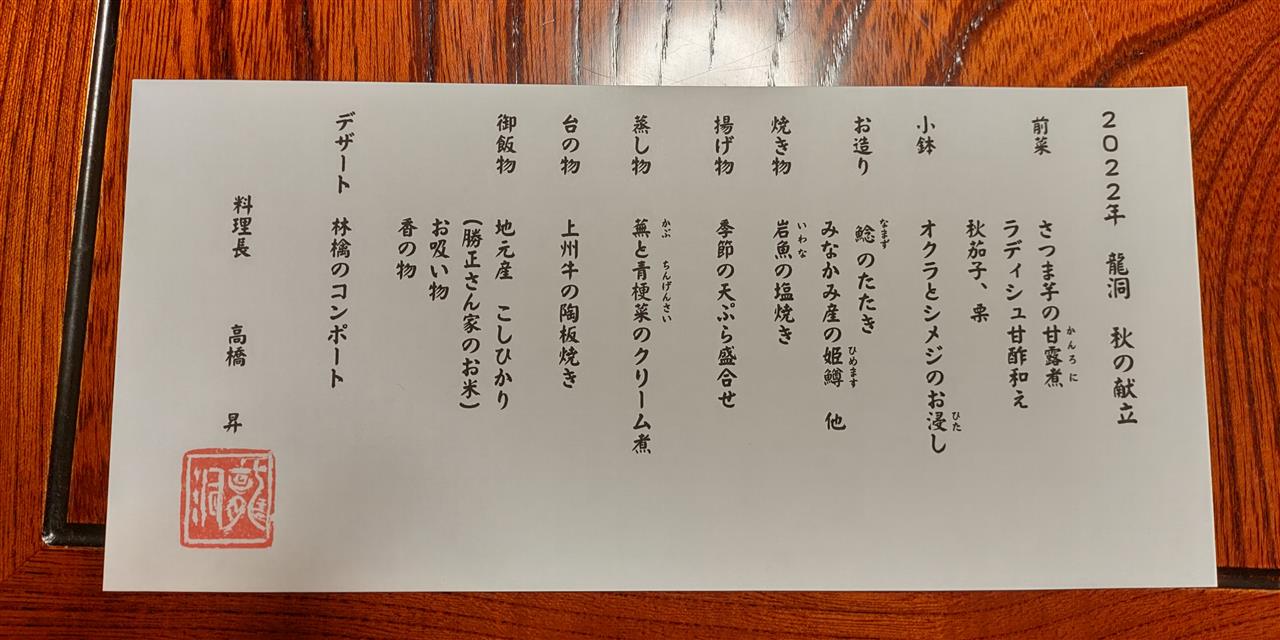 2022年　龍洞　秋の献立
前菜　さつま芋の甘露煮
かんろに
ラディシュ甘酢和え
秋茄子、栗
小鉢　オクラとシメジのお浸し
ひた
お造り　鯰のたたき
なまず
みなかみ産の姫鱒　他
ひめます
焼き物　岩魚の塩焼き
いわな
揚げ物　季節の天ぷら盛合せ
蒸し物　蕪と青梗菜のクリーム煮
かぶ　ちんげんさい
台の物　上州牛の陶板焼き
御飯物　地元産　こしひかり
(勝正さん家のお米)
お吸い物
香の物
デザート　林檎のコンポート
料理長　高橋　昇
龍洞